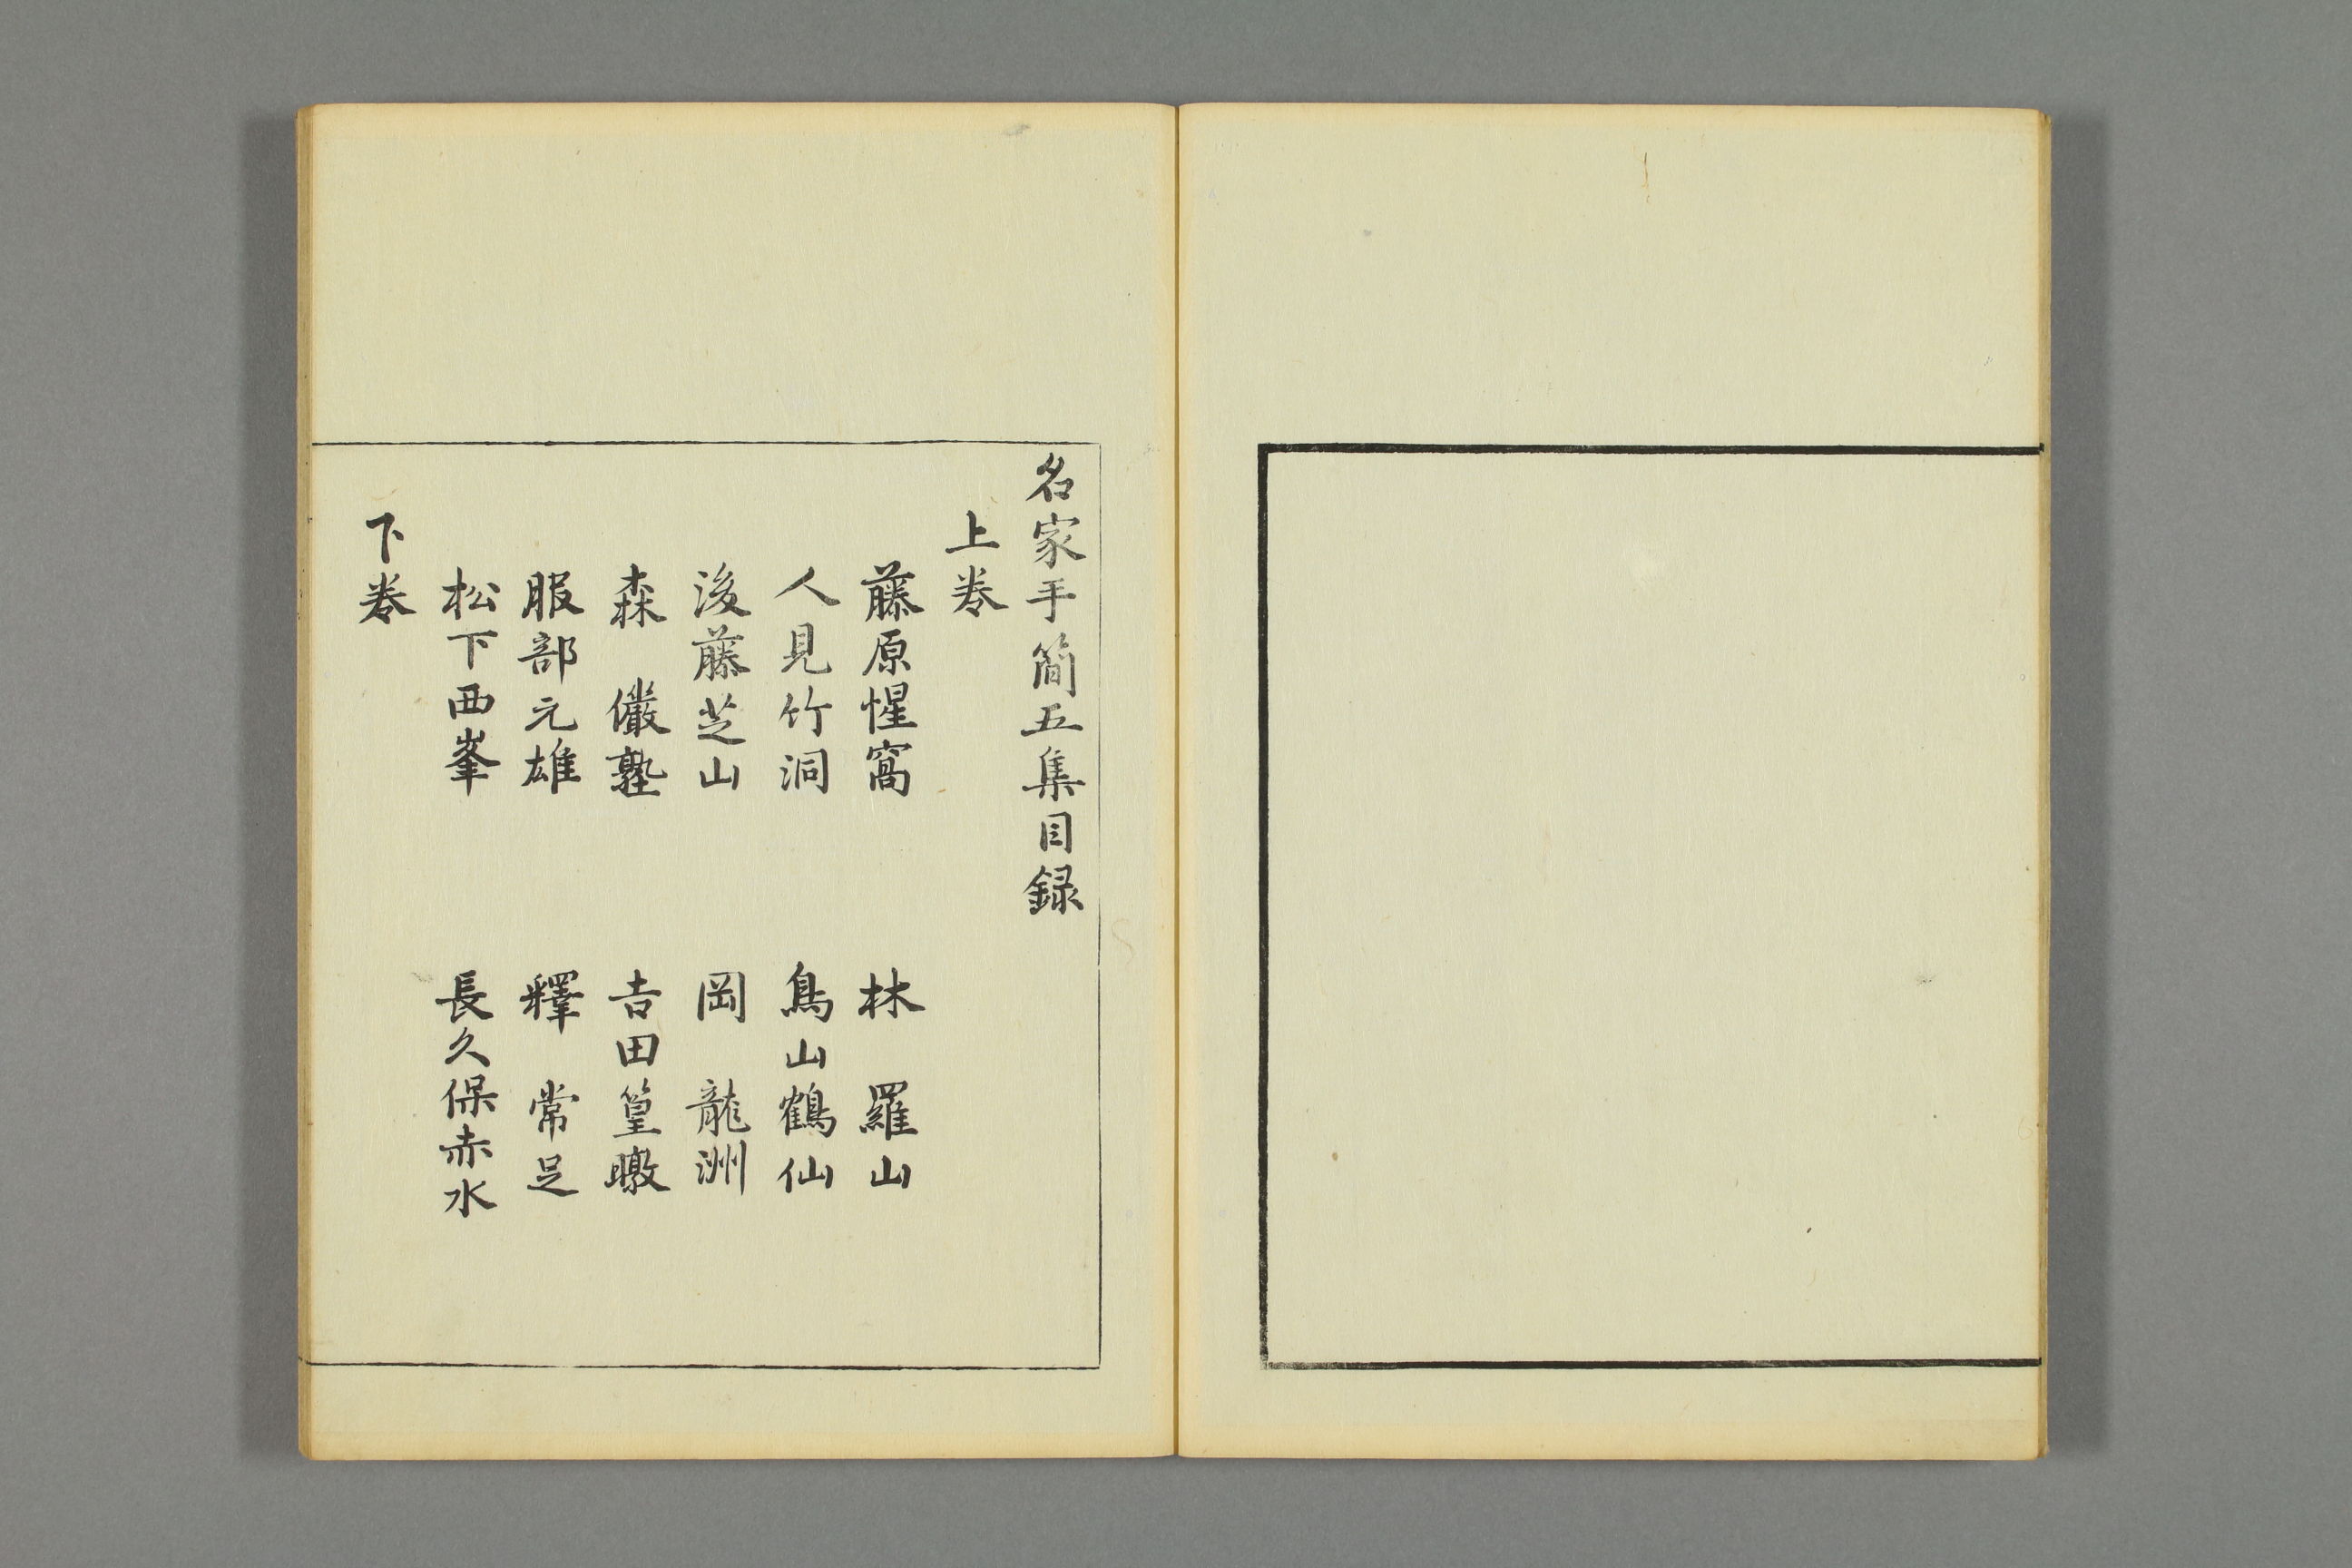 名家手簡五集目録
上巻
藤原惺窩　林　羅山
人見竹洞　鳥山鶴仙
後藤芝山　岡　龍洲
森　儼塾　吉田篁墩
服部元雄　釋　常足
松下西峯　長久保赤水
下巻